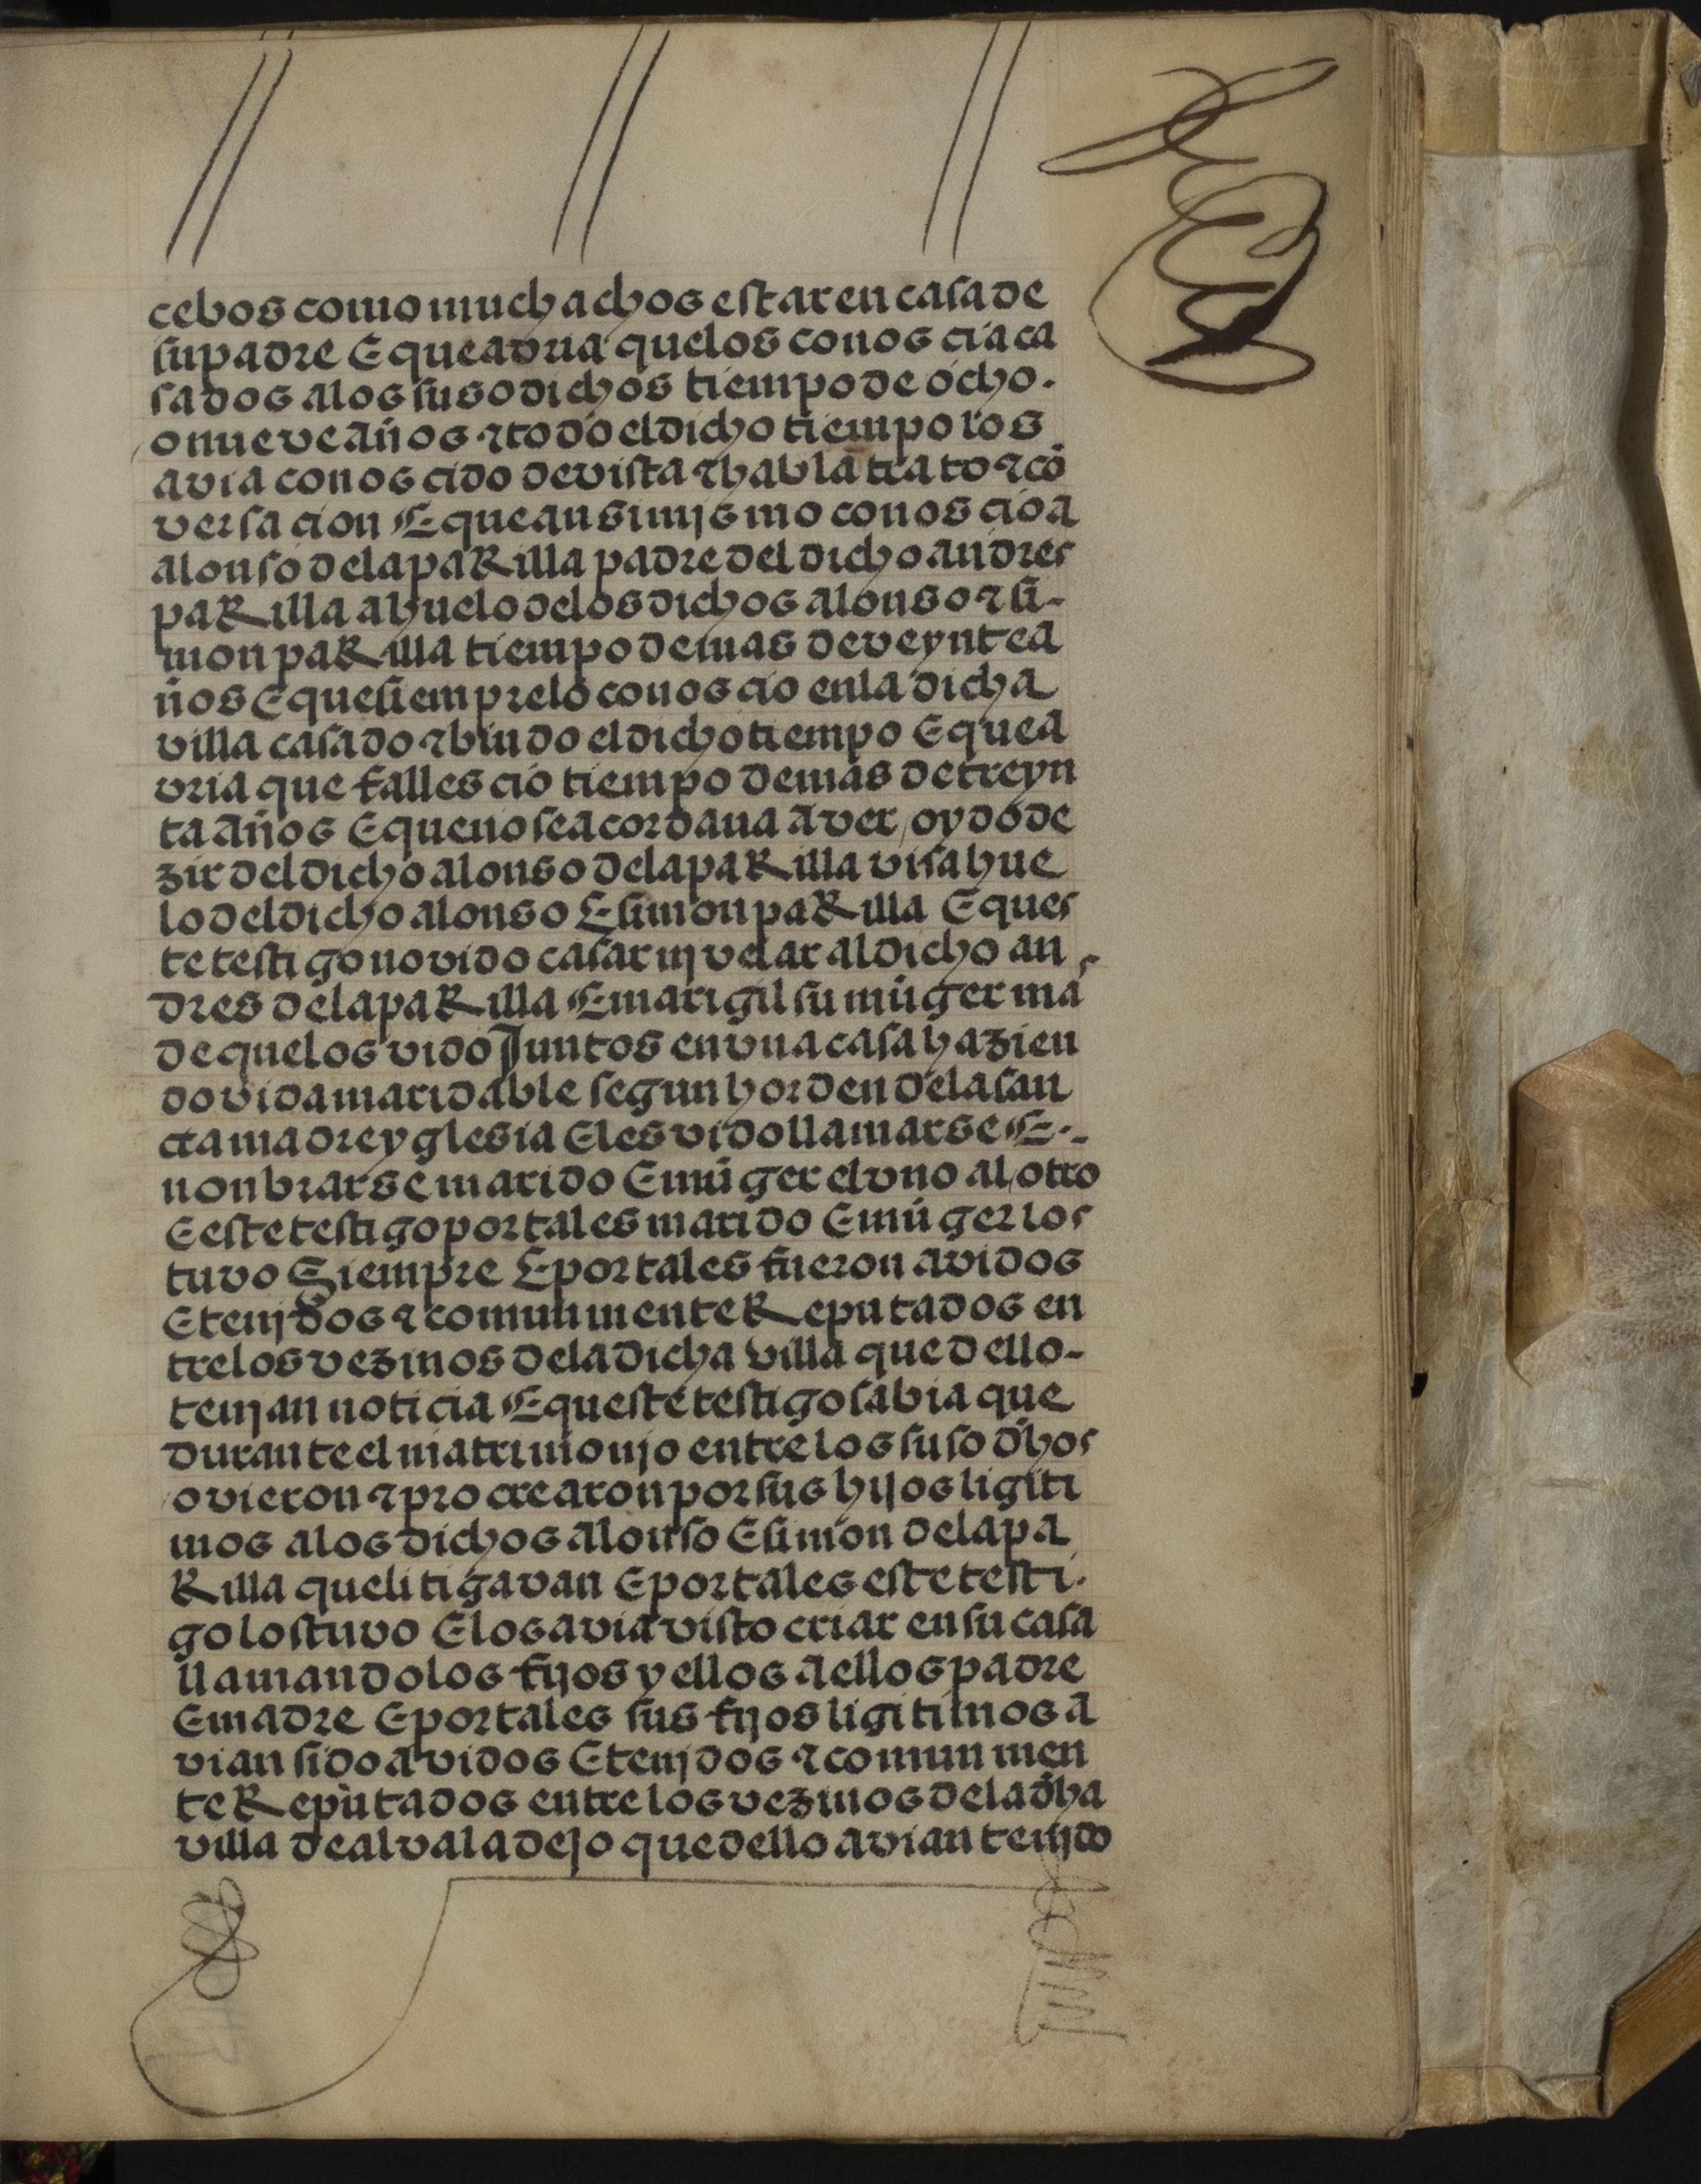 cebos como muchachos estar en casa de
su padre E que avria que los conoscia ca
sados a los susodichos tiempo de ocho.
o nueve años ⁊ todo el dicho tiempo los
avia conoscido de vista ⁊ habla trato ⁊ cõ
versacion E que ansimjsmo conoscio a
alonso de la paRilla padre del dicho andres
paRilla ahuelo de los dichos alonso ⁊ si-
mon paRilla tiempo de mas de veynte a
ños E que siempre lo conoscio en la dicha
villa casado ⁊ biudo el dicho tiempo E que a
vria que fallescio tiempo de mas de treyn
ta años E que no se acordava aver oydo de
zir del dicho alonso de la paRilla visahue
lo del dicho alonso E simon paRilla E ques
te testigo no vido casar nj velar al dicho an
dres de la paRilla E mari gil su muger mas
de que los vido Juntos en vna casa hazien
do vida maridable segun horden de la san
cta madre yglesia E les vido llamarse E.-
nonbrarse marido E muger el vno al otro
E este testigo por tales marido E muger los
tuvo Siempre E por tales fueron avidos
E tenjdos ⁊ comunmente Reputados en
tre los vezinos de la dicha villa que dello-
tenjan noticia E queste testigo sabia que
durante el matrimonjo entre los suso dhos
ovieron ⁊ procrearon por sus hijos ligiti
mos a los dichos alonso E simon de la pa
Rilla que litigavan E por tales este testi.
go los tuvo E los avia visto criar en su casa
llamandolos fijos y ellos a ellos padre
E madre E por tales sus fijos ligitimos a
vian sido avidos E tenjdos ⁊ comunmen
te Reputados entre los vezinos de la dha
villa de alvaladejo que dello avian tenjdo